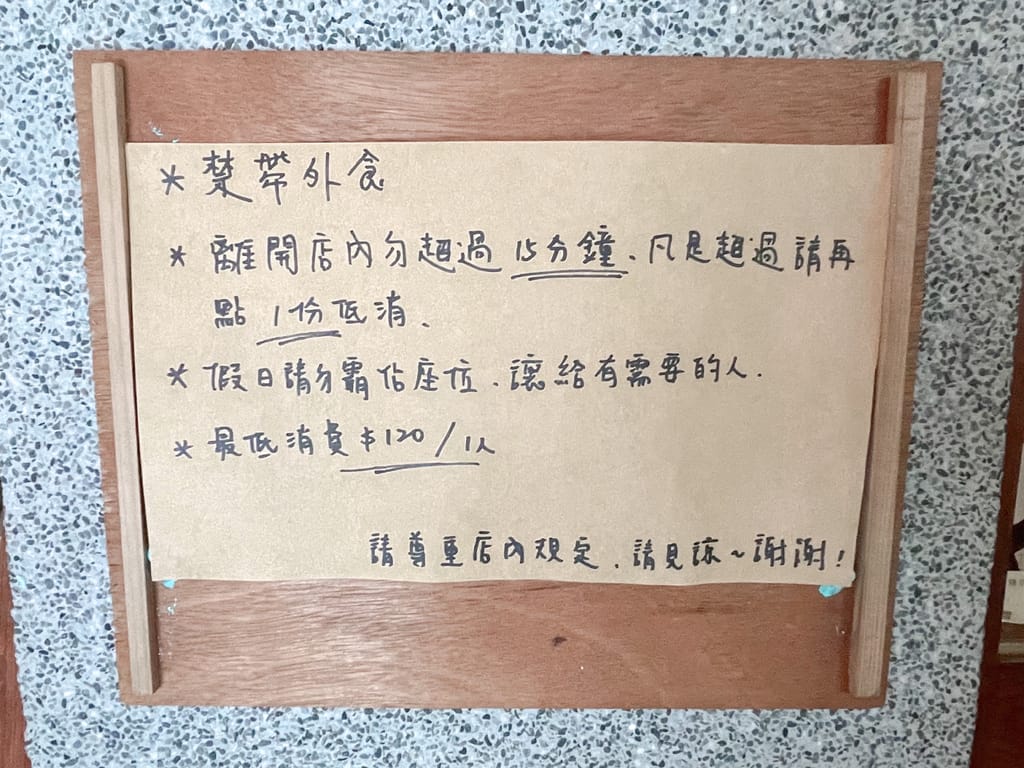 * 禁帶外食
* 離開店內勿超過15分鐘、凡是超過請再
點1份低消、
* 假日請勿霸佔座位、讓給有需要的人.
* 最低消費$120/1人
請尊重店內規定、請見諒~謝謝!